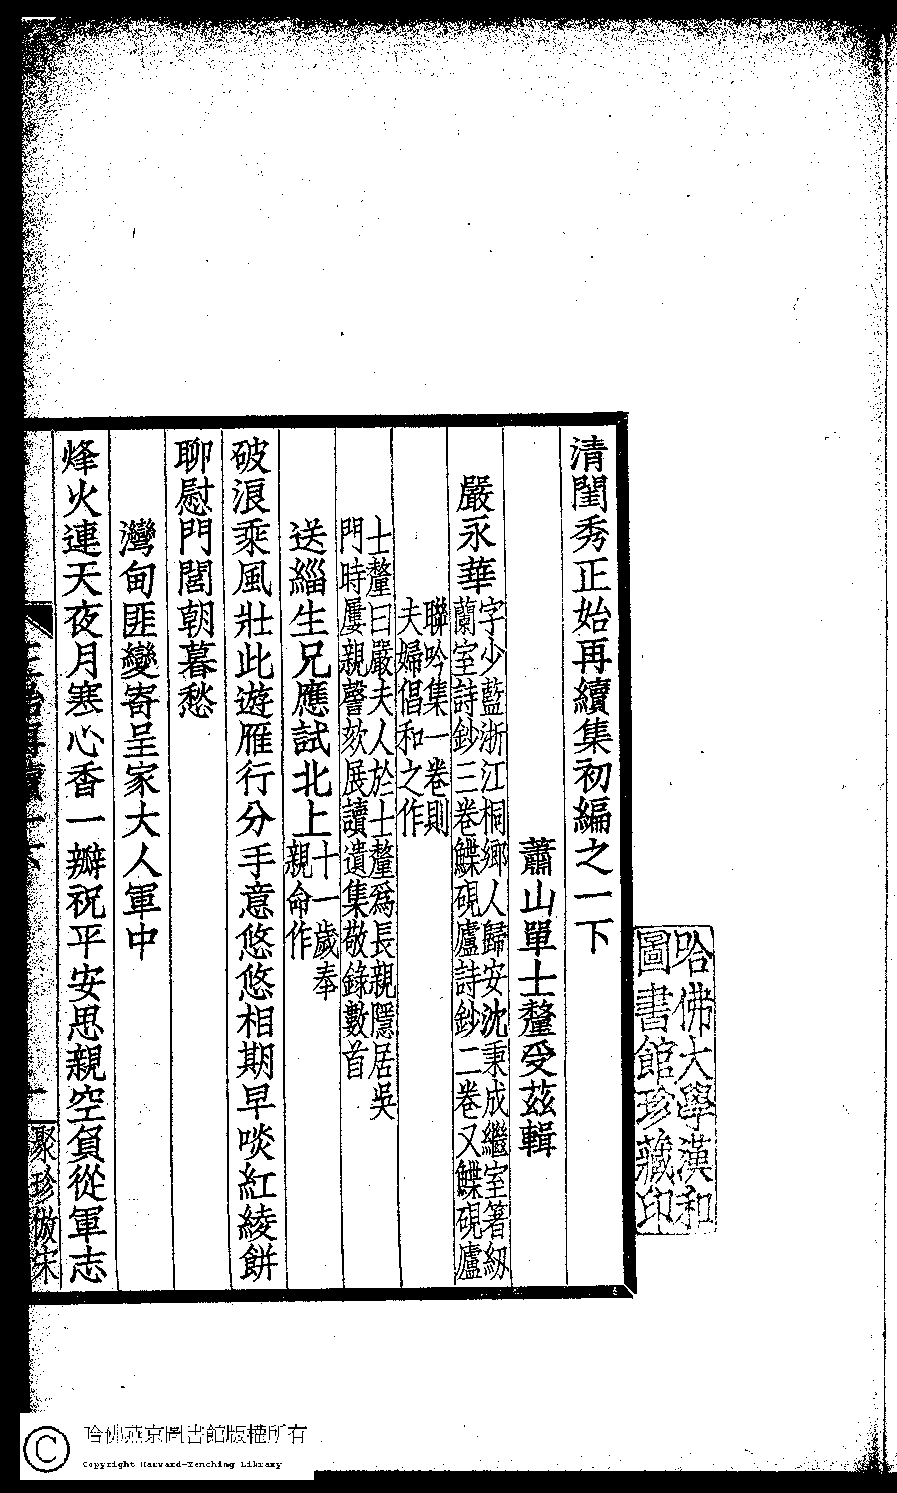 清閨秀正始再續集初編之一下
蕭山單士釐受茲輯
嚴永華
字少藍浙江桐鄉人歸安沈秉成繼室箸紉
蘭室詩鈔三卷鰈硯廬詩鈔二卷又鰈硯廬
聯吟集一卷則
夫婦倡和之作
士釐曰嚴夫人於士釐爲長親隱居吳
門時屢親謦欬展讀遺集敬錄數首
送緇生兄應試北上
十一歲奉
親命作
破浪乘風壯此遊雁行分手意悠悠相期早啖紅綾餅
聊慰門閭朝暮愁
灣甸匪變寄呈家大人軍中
烽火連天夜月寒心香一瓣祝平安思親空負從軍志
聚珍倣宋
哈佛大學漢和
圖書館珍藏印
哈佛燕京圖書館版權所有
Copyright Harvard-Yenching Library